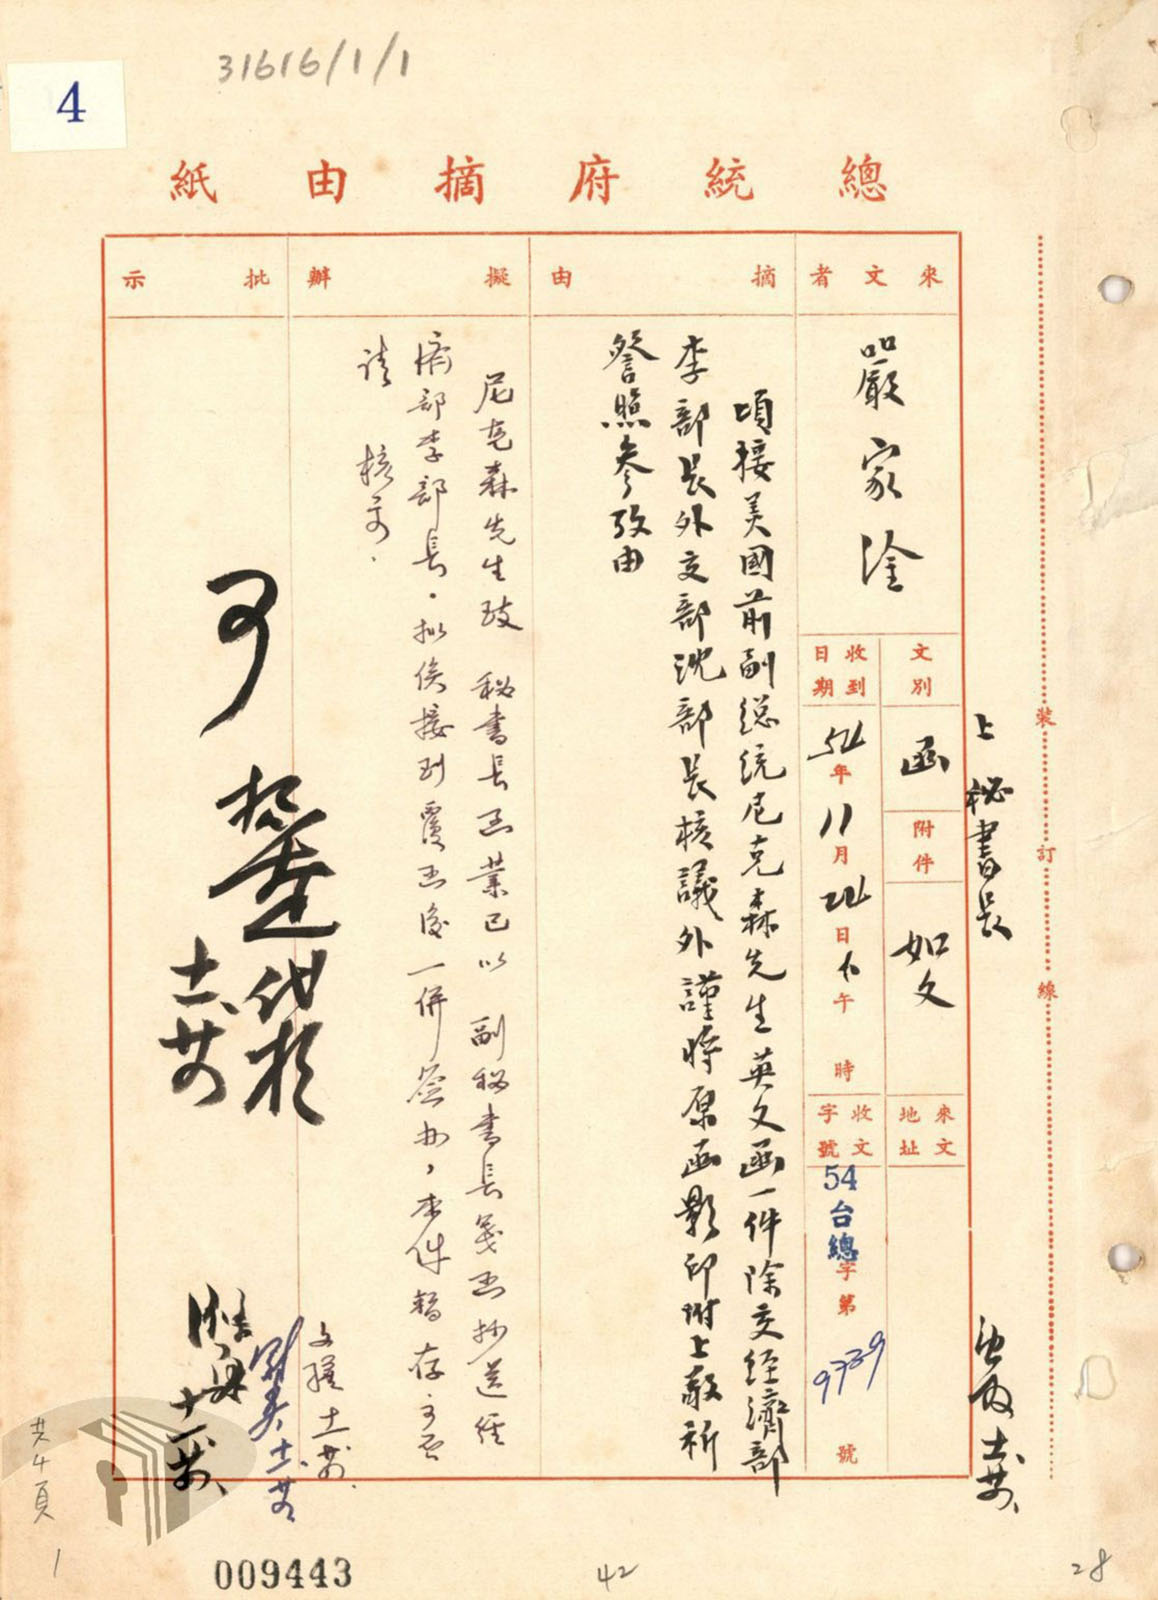 31616/1/1
4
總統府摘由紙
來文者
嚴家淦
文別
函
附件
如文
來文地址
收到日期
54年11月24日下午 時
收文字號
54台總字第9739號
摘由
頃接美國前副總統尼克森先生英文函一件除交經濟部
李部長外交部沈部長核議外謹將原函影印附上敬祈
詧照參攷由
擬辦
尼克森先生致 秘書長函業已以 副秘書長箋函抄送經
濟部李部長。擬俟接到覆函後一併簽辦,本件暫存,可否
請 核示.
批示
可
代
上 秘書長
裝訂線
共4頁
1
009443
42
28